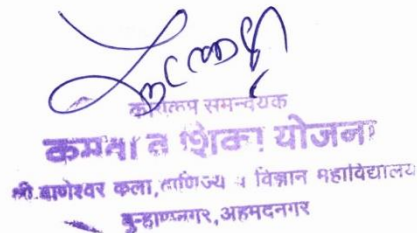 समन्वयक
कमवा व शिका योजना
श्री बाणेश्वर कला, वाणिज्य व विज्ञान महाविद्यालय
बु-हाणनगर, अहमदनगर